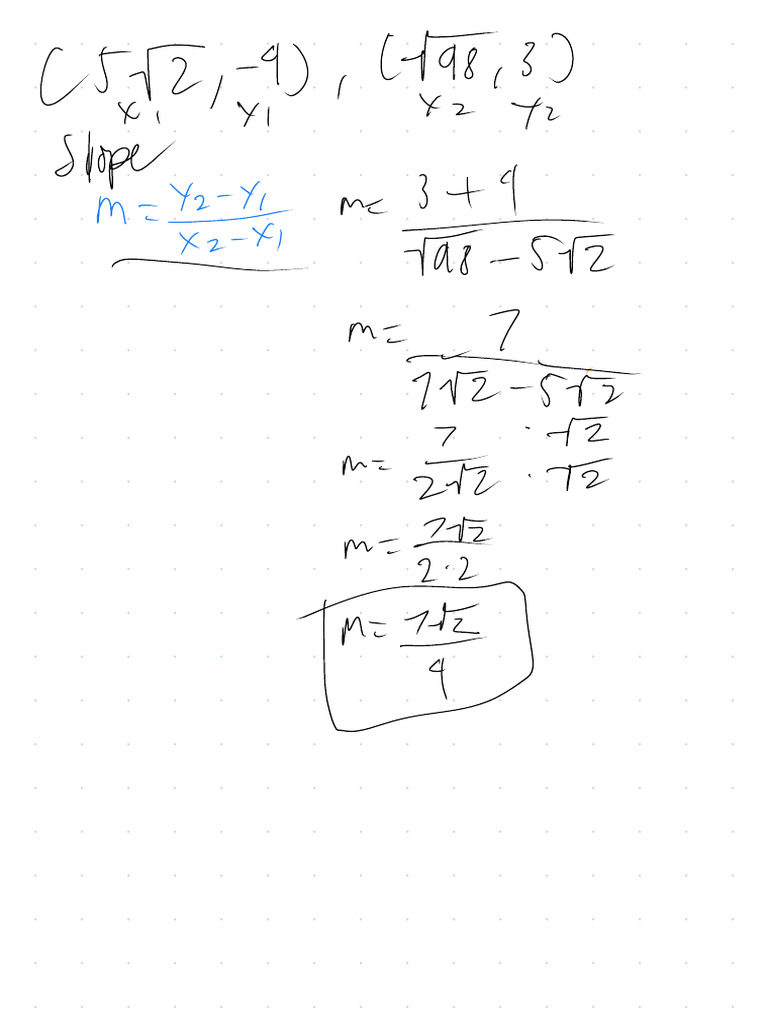 (5√2, -4), (√98, 3)
x1 y1 x2 y2
Slope
m = (y2 - y1)/(x2 - x1)
m = (3 + 4)/(√98 - 5√2)
m = 7/(7√2 - 5√2)
m = 7/(2√2) · √2/√2
m = 7√2/(2·2)
m = 7√2/4